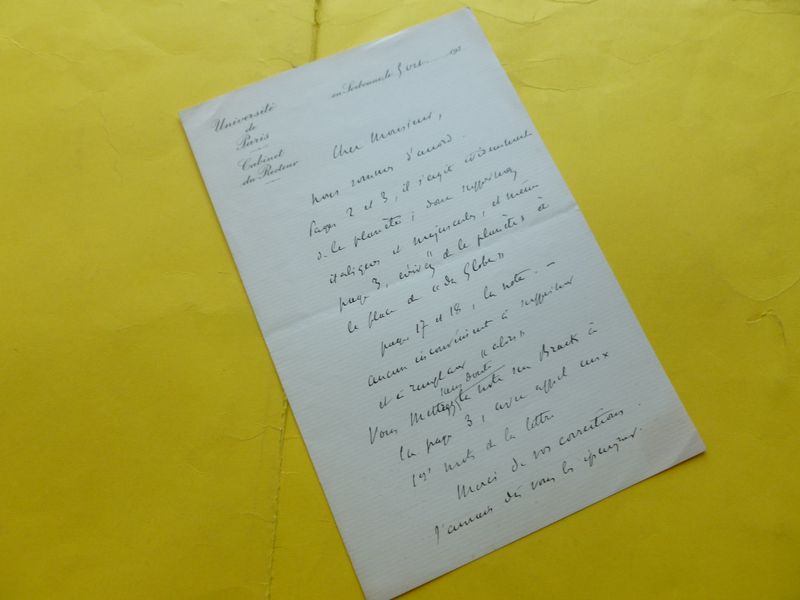 Université
de
Paris
Cabinet
du Recteur
en Sorbonne, le 5 oct. 191
Cher Monsieur,
nous sommes d'accord.
Pages 2 et 3, il s'agit évidemment
de la planète ; donc supprimez
italiques et majuscules, et même
page 3, écrivez de la planète à
la place de "du Globe"
pages 17 et 18, la note. —
aucun inconvénient à supprimer
et à remplacer "alors"
sans doute
Vous mettez la note sur à
la page 3, avec appel aux
mots de la lettre
Merci de vos corrections.
J'aurais dû vous les épargner.